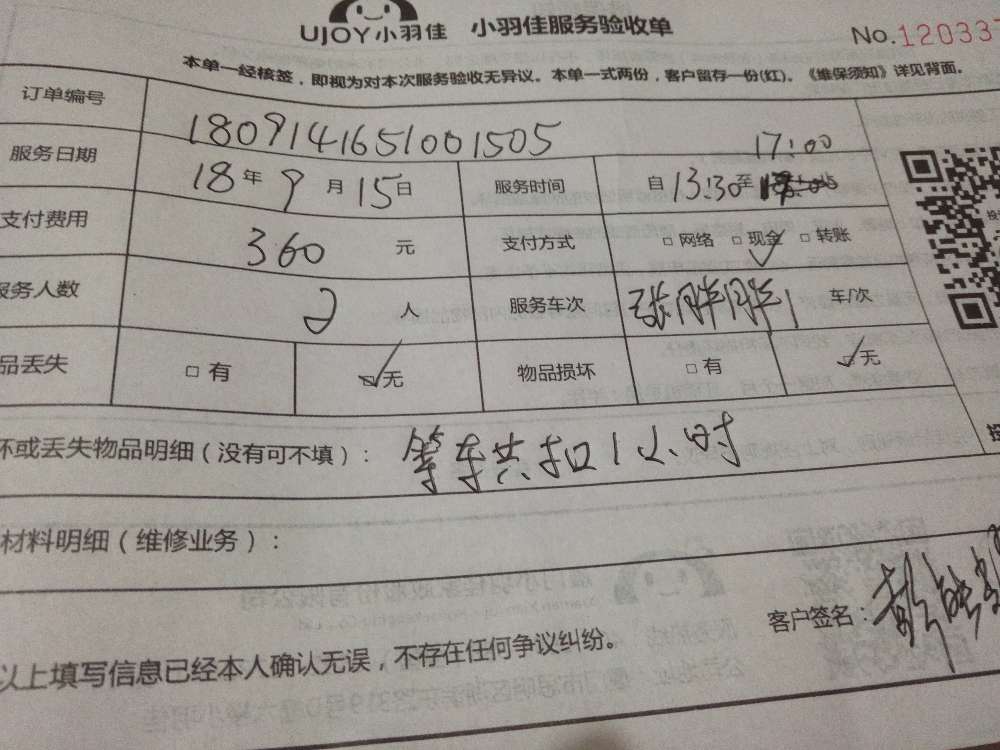 UJOY小羽佳 小羽佳服务验收单 No.120337
本单一经核签，即视为对本次服务验收无异议。本单一式两份，客户留存一份(红)。《维保须知》详见背面。
订单编号 1809141651001505
服务日期 18年9月15日 服务时间 自13:30至 17:00
支付费用 360元 支付方式 □网络 □现金 □转账
服务人数 2人 服务车次 1 车/次
品丢失 □有 □无 物品损坏 □有 □无
坏或丢失物品明细（没有可不填）： 等车共扣1小时
材料明细（维修业务）：
客户签名：
以上填写信息已经本人确认无误，不存在任何争议纠纷。